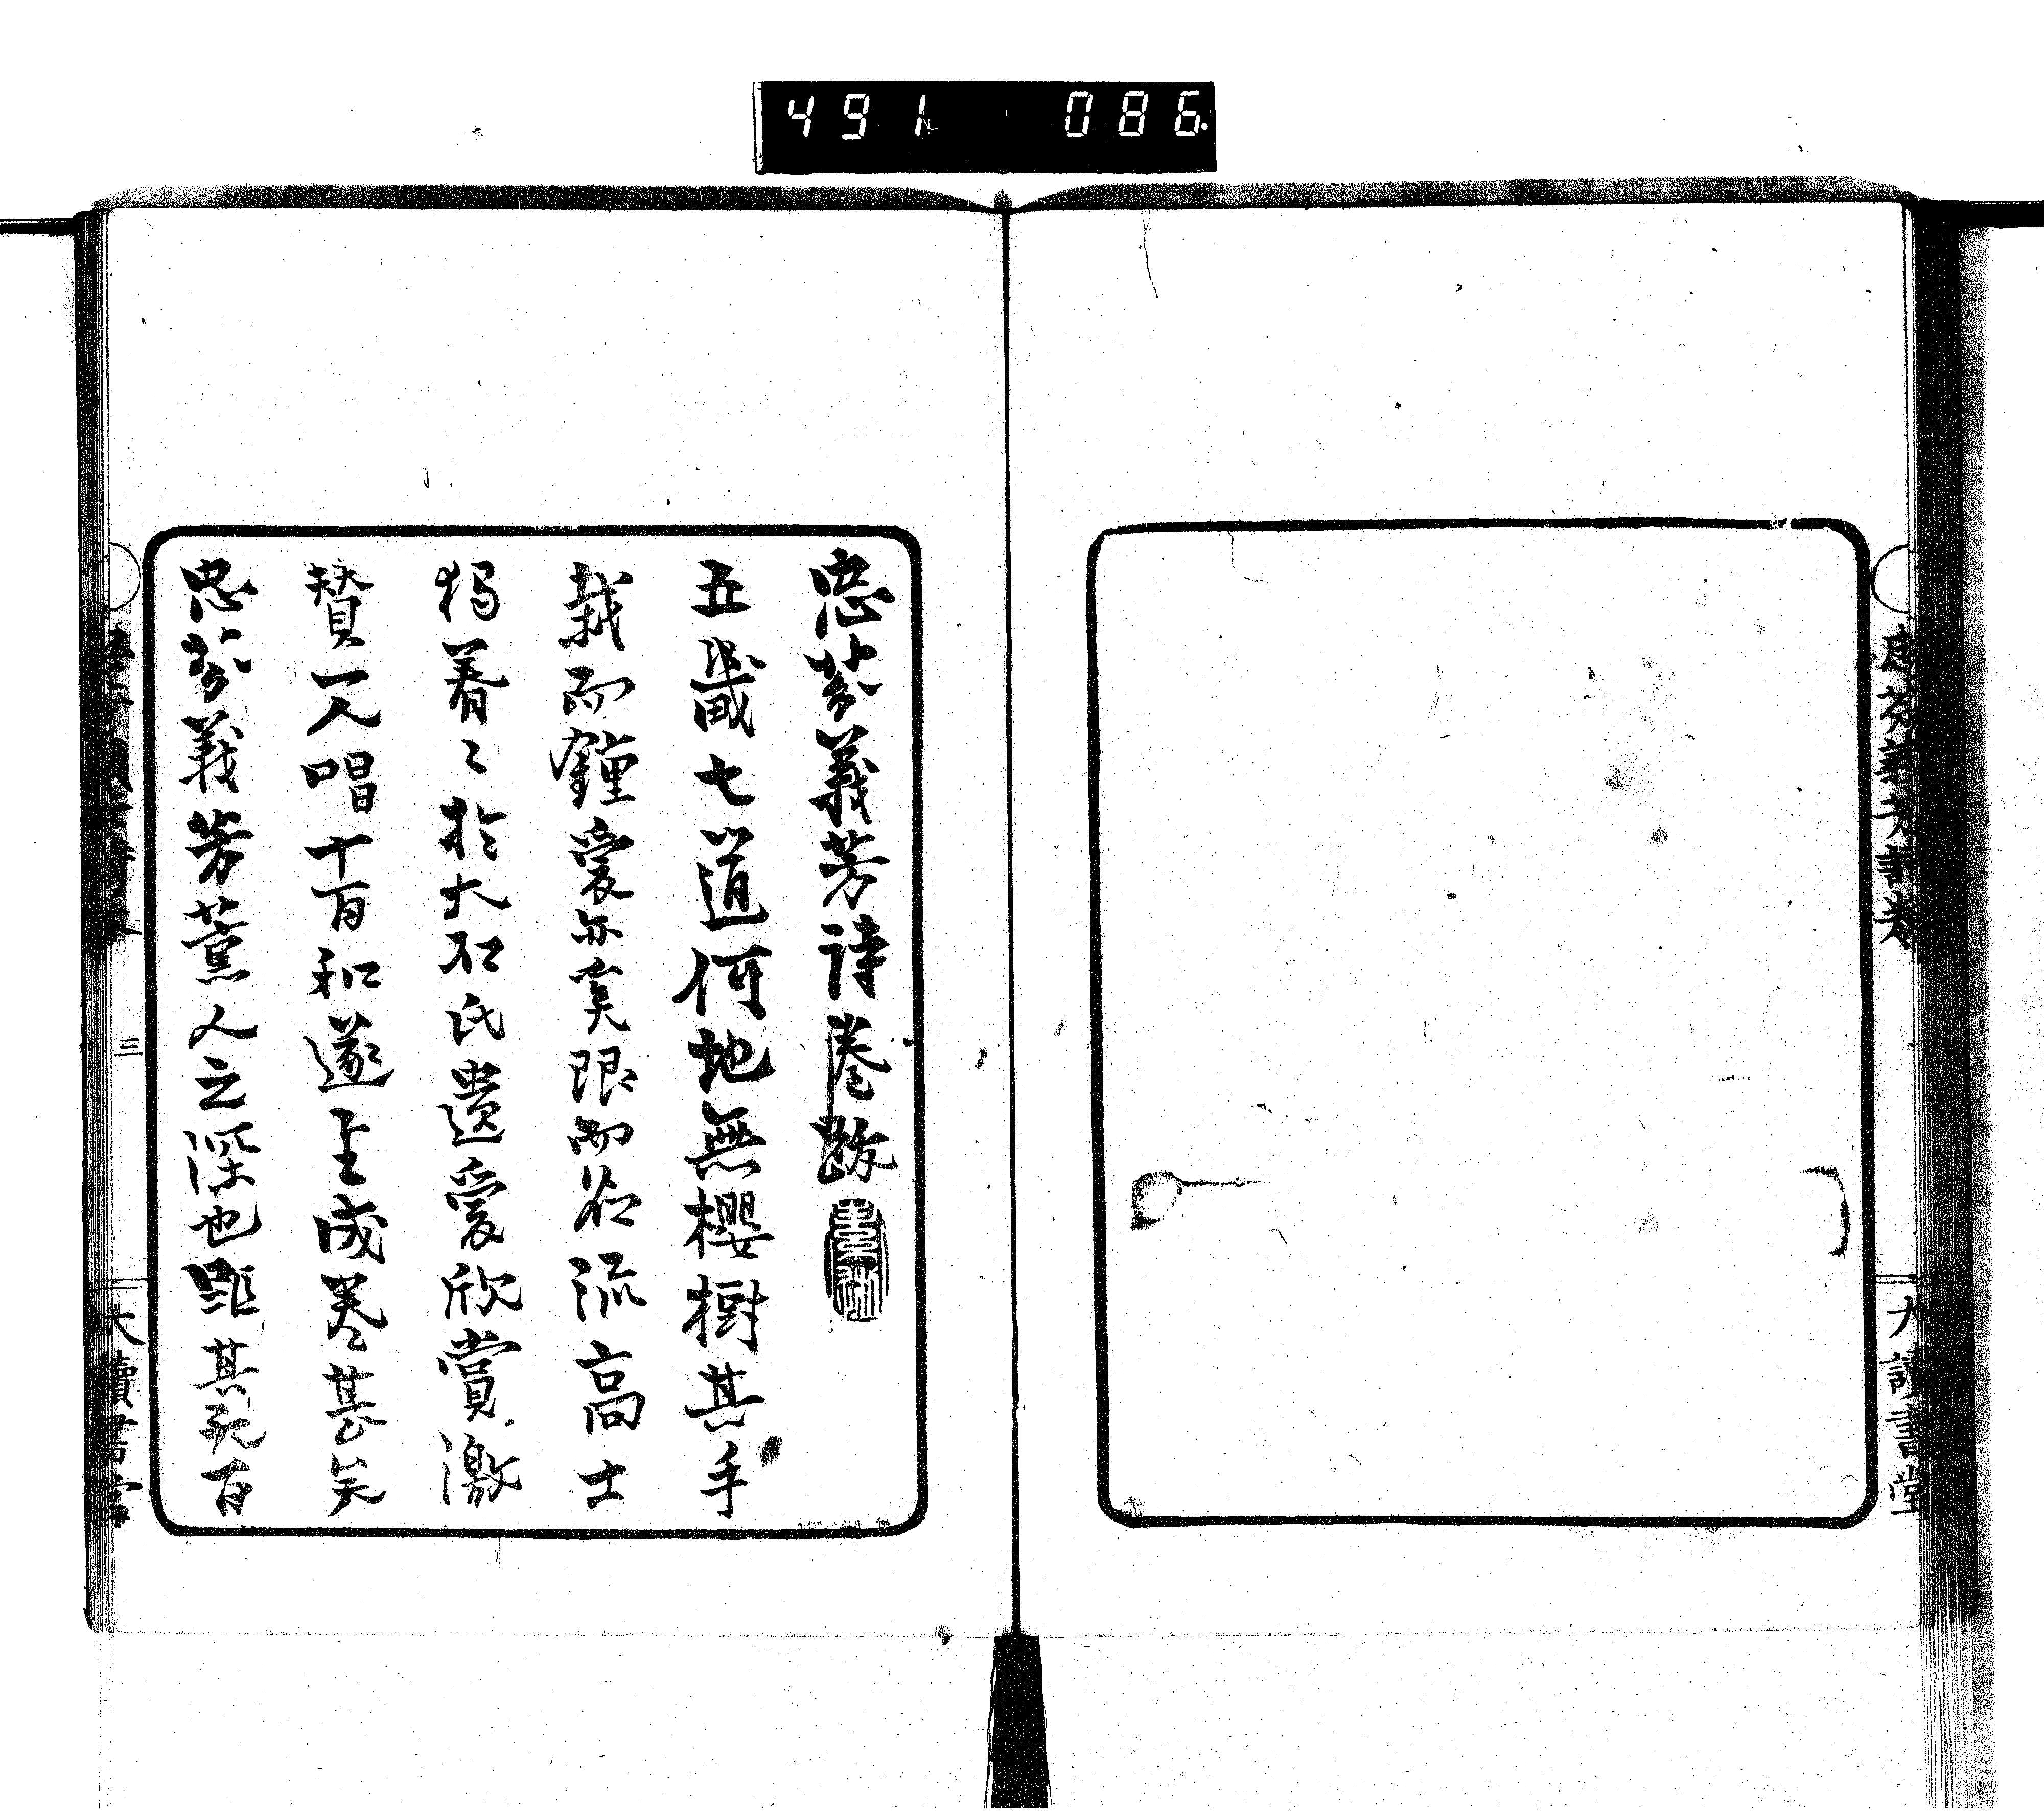 491 086
忠芬義芳詩卷跋
五畿七道何地無櫻樹其手
栽而鍾愛亦奚限而名流高士
獨眷〻於大石氏遺愛欣賞激
賛一人唱十百和遂至成卷甚矣
忠芬義芳薰人之深也距其死百
三
大讀書堂
忠芬義芳詩卷
大讀書堂